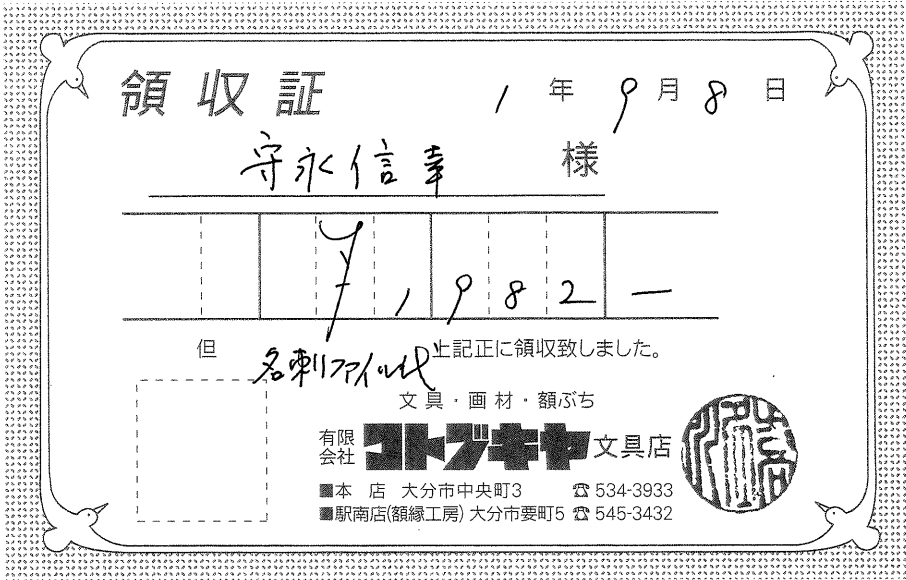 領収証 1年9月8日
守永信幸 様
¥1982-
但 名刺ファイル代 上記正に領収致しました。
文具・画材・額ぶち
有限会社 コトブキヤ 文具店
■本 店 大分市中央町3 ☎534-3933
■駅南店(額縁工房) 大分市要町5 ☎545-3432